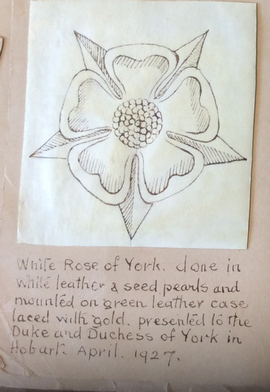 White Rose of York. done in
white leather & seed pearls and
mounted on green leather case
laced with gold. presented to the
Duke and Duchess of York in
Hobart. April. 1927.